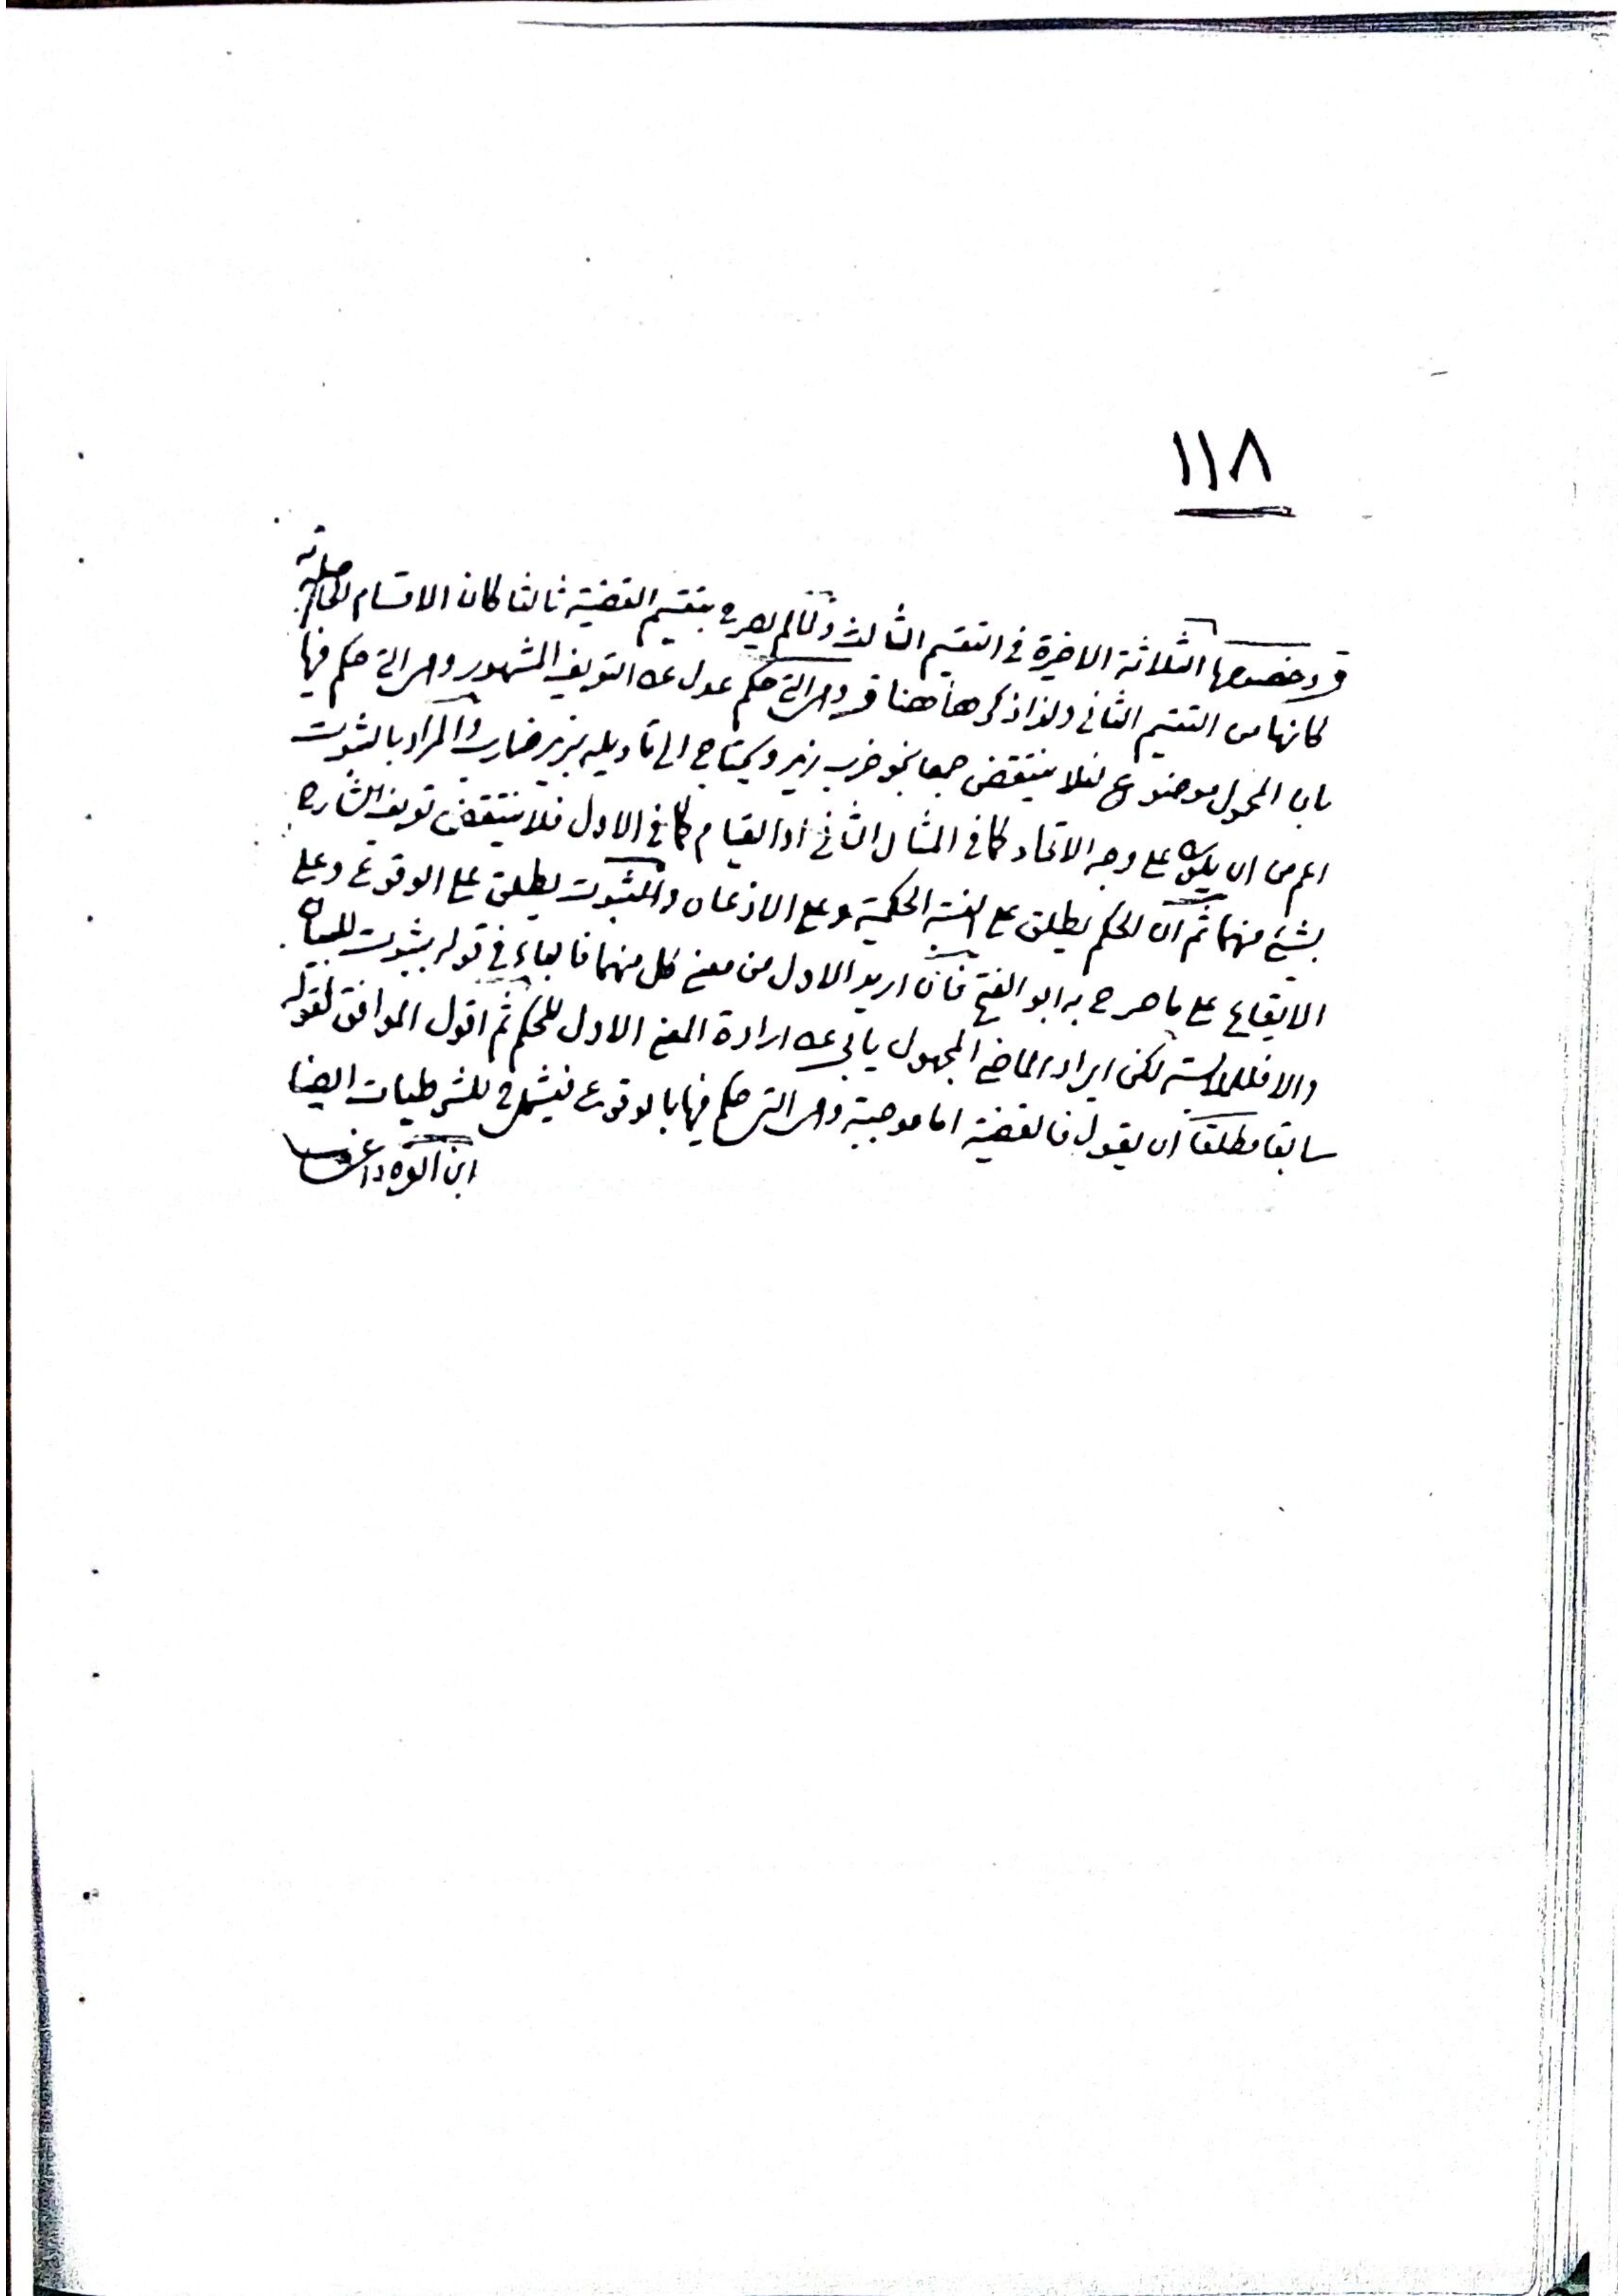 ١١٨
قر وخصوصها الثلاثة الاخيرة فى التقسيم الثالث ولما لم يصرح بتقسيم القضية ثالثا كان الاقسام الحاصلة
كانها من التقسيم الثانى ولذا ذكرها ههنا قر وهى التى حكم عدل عن التعريف المشهور وهى التى حكم فيها
بان المحمول موضوع لئلا ينتقض جمعا بنحو ضرب زيد ويحتاج الى تاويله بزيد ضارب والمراد بالثبوت
اعم من ان يكون على وجه الاتحاد كما فى المثال الثانى او القيام كما فى الاول فلا ينتقض تعريف الشارح
بشئ منهما ثم ان الحكم يطلق على النسبة الحكمية وعلى الاذعان والثبوت يطلق على الوقوع وعلى
الايقاع على ما صرح به ابو الفتح فان اريد الاول من معنى كل منهما فالباء فى قوله بثبوت للبيان
والا فللملابسة لكن ايراد الماضى المجهول يابى عن ارادة المعنى الاول للحكم ثم اقول الموافق لقوله
سابقا مطلقا ان يقول فالقضية اما موجبة وهى التى حكم فيها بالوقوع فيشمل للشرطيات ايضا
ابن القره داغى